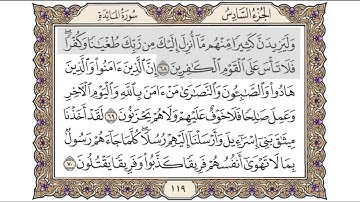 الجزء السادس
سورة المائدة
وَلَيَزِيدَنَّ كَثِيرًا مِّنْهُم مَّا أُنزِلَ إِلَيْكَ مِن رَّبِّكَ طُغْيَانًا وَكُفْرًا ۖ
فَلَا تَأْسَ عَلَى الْقَوْمِ الْكَافِرِينَ ٦٨ إِنَّ الَّذِينَ ءَامَنُوا وَالَّذِينَ
هَادُوا وَالصَّابِئُونَ وَالنَّصَارَىٰ مَنْ ءَامَنَ بِاللَّهِ وَالْيَوْمِ الْآخِرِ
وَعَمِلَ صَالِحًا فَلَا خَوْفٌ عَلَيْهِمْ وَلَا هُمْ يَحْزَنُونَ ٦٩ لَقَدْ أَخَذْنَا
مِيثَاقَ بَنِي إِسْرَاءِيلَ وَأَرْسَلْنَا إِلَيْهِمْ رُسُلًا ۖ كُلَّمَا جَاءَهُمْ رَسُولٌ
بِمَا لَا تَهْوَىٰ أَنفُسُهُمْ فَرِيقًا كَذَّبُوا وَفَرِيقًا يَقْتُلُونَ ٧٠
١١٩